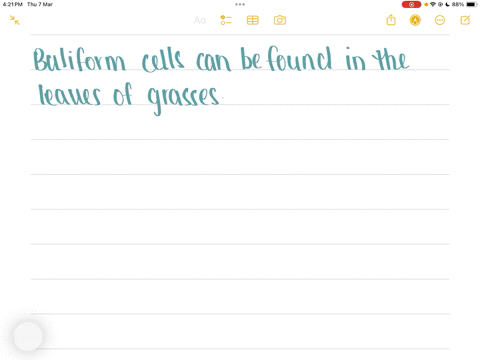 4:21 PM Thu 7 Mar
88%
Aa
Buliform cells can be found in the
leaves of grasses.